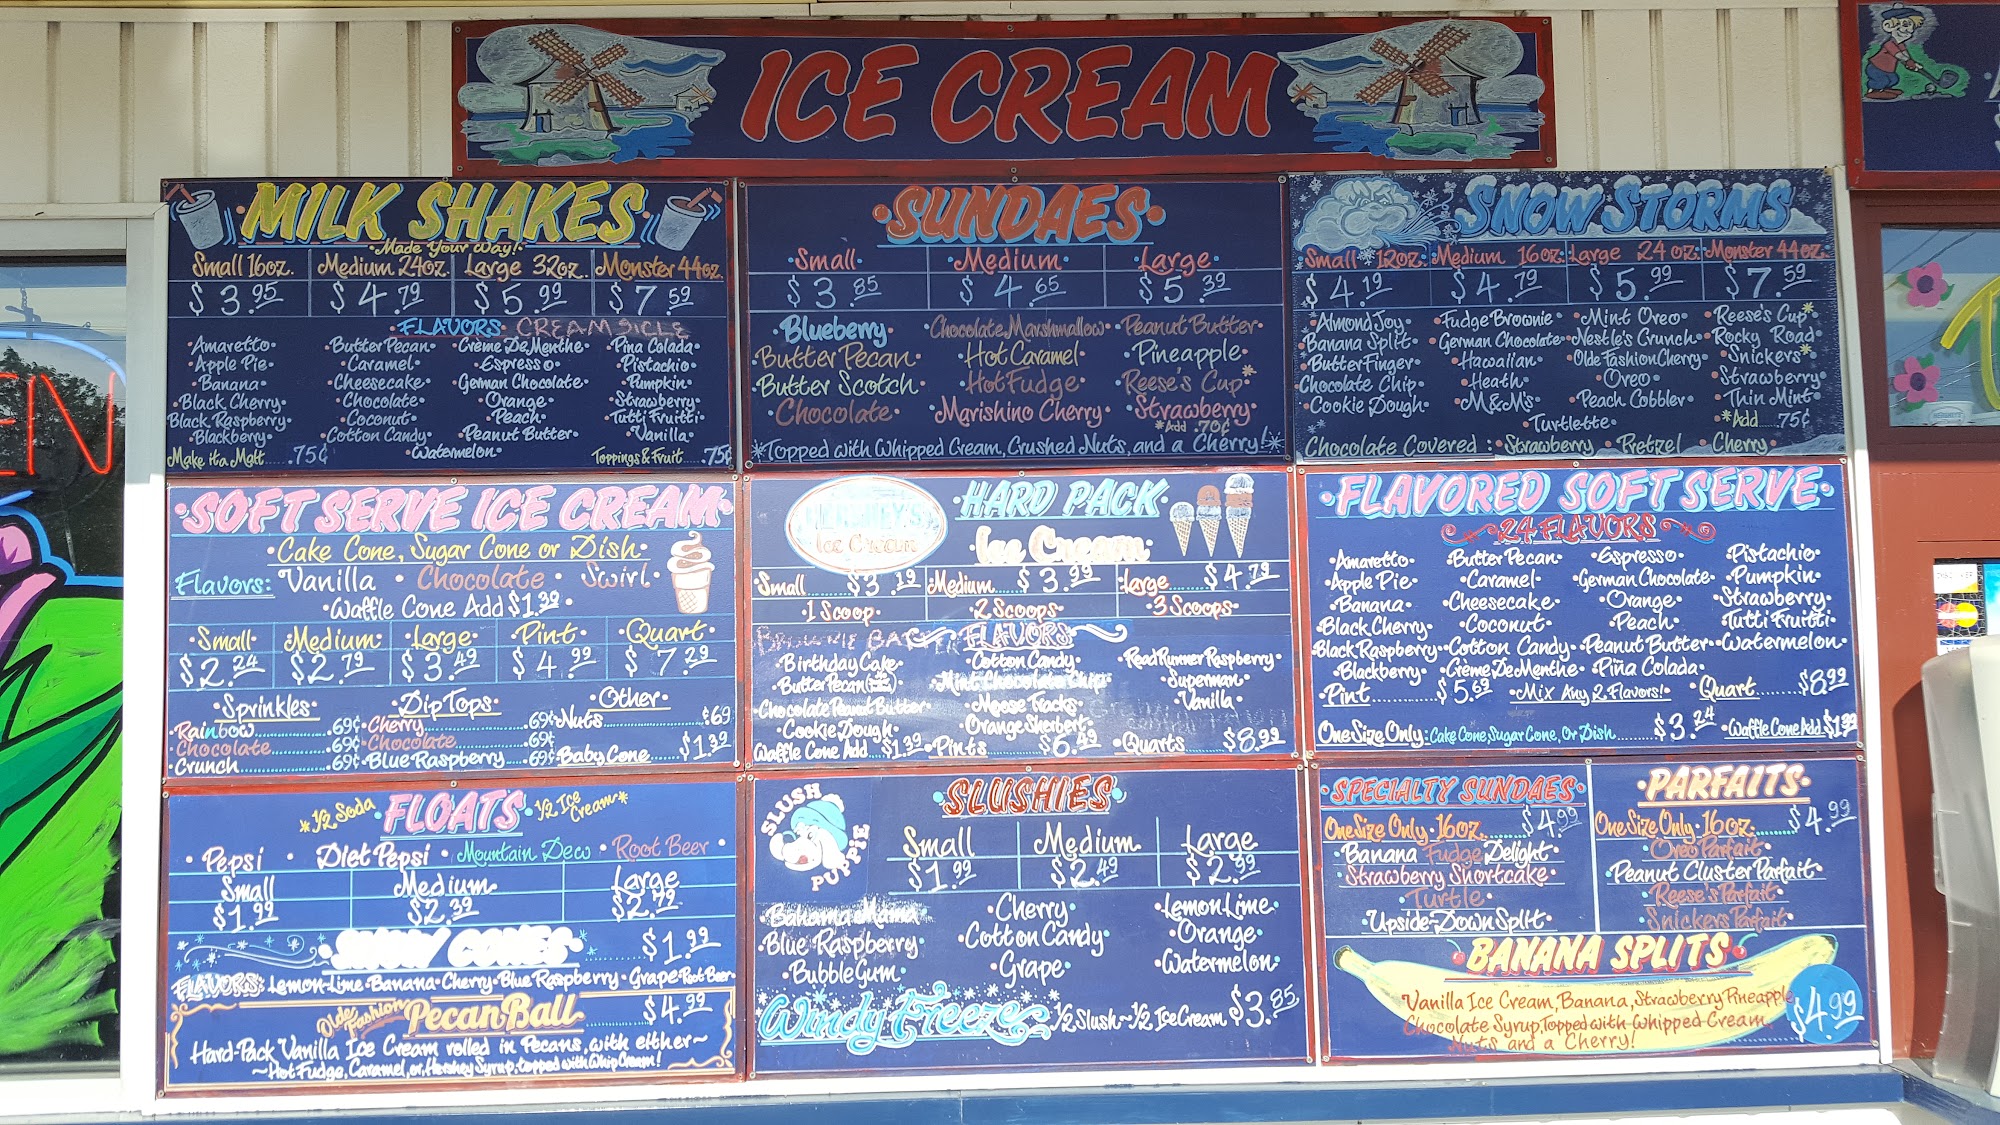 ICE CREAM
MILK SHAKES
•Made Your Way!•
Small 16oz. Medium 24oz. Large 32oz. Monster 44oz.
$3.95 $4.79 $5.99 $7.59
FLAVORS: CREAMSICLE
•Amaretto• •Butter Pecan• •Crème De Menthe• •Pina Colada•
•Apple Pie• •Caramel• •Espresso• •Pistachio•
•Banana• •Cheesecake• •German Chocolate• •Pumpkin•
•Black Cherry• •Chocolate• •Orange• •Strawberry•
•Black Raspberry• •Coconut• •Peach• •Tutti Fruitti•
•Blackberry• •Cotton Candy• •Peanut Butter• •Vanilla•
•Watermelon•
Make it a Malt.....75¢ Toppings & Fruit.....75¢
•SUNDAES•
•Small• •Medium• •Large•
$3.85 $4.65 $5.39
Blueberry• •Chocolate, Marshmallow• •Peanut Butter•
•Butter Pecan• •Hot Caramel• •Pineapple•
•Butter Scotch• •Hot Fudge• •Reese's Cup*
•Chocolate• •Marishino Cherry• •Strawberry•
*Add .70¢
*Topped with Whipped Cream, Crushed Nuts, and a Cherry!*
SNOW STORMS
Small 12oz. Medium 16oz. Large 24oz. Monster 44oz.
$4.19 $4.79 $5.99 $7.59
•Almond Joy• •Fudge Brownie• •Mint Oreo• •Reese's Cup*
•Banana Split• •German Chocolate• •Nestle's Crunch• •Rocky Road•
•Butter Finger• •Hawaiian• •Olde Fashion Cherry• •Snickers*
•Chocolate Chip• •Heath• •Oreo• •Strawberry•
•Cookie Dough• •M&M's• •Peach Cobbler• •Thin Mint•
•Turtlette• *Add....75¢
Chocolate Covered: •Strawberry •Pretzel •Cherry
•SOFT SERVE ICE CREAM•
•Cake Cone, Sugar Cone or Dish•
Flavors: •Vanilla • Chocolate • Swirl•
•Waffle Cone Add $1.39•
•Small• •Medium• •Large• •Pint• •Quart•
$2.24 $2.79 $3.49 $4.99 $7.29
•Sprinkles• •Dip Tops• •Other•
•Rainbow.....69¢ •Cherry.....69¢ •Nuts.....$.69
•Chocolate.....69¢ •Chocolate.....69¢
•Crunch.....69¢ •Blue Raspberry.....69¢ •Baby Cone.....$1.39
HERSHEY'S
Ice Cream
•HARD PACK•
Ice Cream
•Small.....$3.19 •Medium.....$3.99 •Large.....$4.79
•1 Scoop• •2 Scoops• •3 Scoops•
FLAVORS
•Birthday Cake• •Cotton Candy• •Road Runner Raspberry•
•Butter Pecan• •Mint Chocolate Chip• •Superman•
•Chocolate Peanut Butter• •Moose Tracks• •Vanilla•
•Cookie Dough• •Orange Sherbert•
Waffle Cone Add $1.39 •Pints.....$6.49 •Quarts.....$8.99
•FLAVORED SOFT SERVE•
•24 FLAVORS•
•Amaretto• •Butter Pecan• •Espresso• •Pistachio•
•Apple Pie• •Caramel• •German Chocolate• •Pumpkin•
•Banana• •Cheesecake• •Orange• •Strawberry•
•Black Cherry• •Coconut• •Peach• •Tutti Fruitti•
•Black Raspberry• •Cotton Candy• •Peanut Butter• •Watermelon•
•Blackberry• •Crème De Menthe• •Piña Colada•
•Pint.....$5.69 •Mix Any 2 Flavors!• •Quart.....$8.99
One Size Only: Cake Cone, Sugar Cone, Or Dish.....$3.24 •Waffle Cone Add $1.39
*1/2 Soda •FLOATS• 1/2 Ice Cream*
• Pepsi • Diet Pepsi • Mountain Dew • Root Beer •
Small Medium Large
$1.99 $2.39 $2.79
SNOW CONES.....$1.99
FLAVORS: Lemon-Lime•Banana•Cherry•Blue Raspberry•Grape•Root Beer•
Olde Fashion Pecan Ball.....$4.99
Hard-Pack Vanilla Ice Cream rolled in Pecans, with either~
~Hot Fudge, Caramel, or, Hershey Syrup, topped with Whip Cream!
SLUSH PUPPIE
•SLUSHIES•
Small Medium Large
$1.99 $2.49 $2.99
•Bahama Mama •Cherry• •Lemon Lime•
•Blue Raspberry• •Cotton Candy• •Orange•
•Bubble Gum• •Grape• •Watermelon•
Windy Freeze 1/2 Slush~1/2 Ice Cream $3.85
•SPECIALTY SUNDAES•
One Size Only•16oz.....$4.99
•Banana Fudge Delight•
•Strawberry Shortcake•
•Turtle•
•Upside-Down Split•
•PARFAITS•
One Size Only•16oz.....$4.99
•Oreo Parfait•
•Peanut Cluster Parfait•
•Reese's Parfait•
•Snickers Parfait•
•BANANA SPLITS•
Vanilla Ice Cream, Banana, Strawberry, Pineapple,
Chocolate Syrup, Topped with Whipped Cream,
Nuts and a Cherry!
$4.99
EN